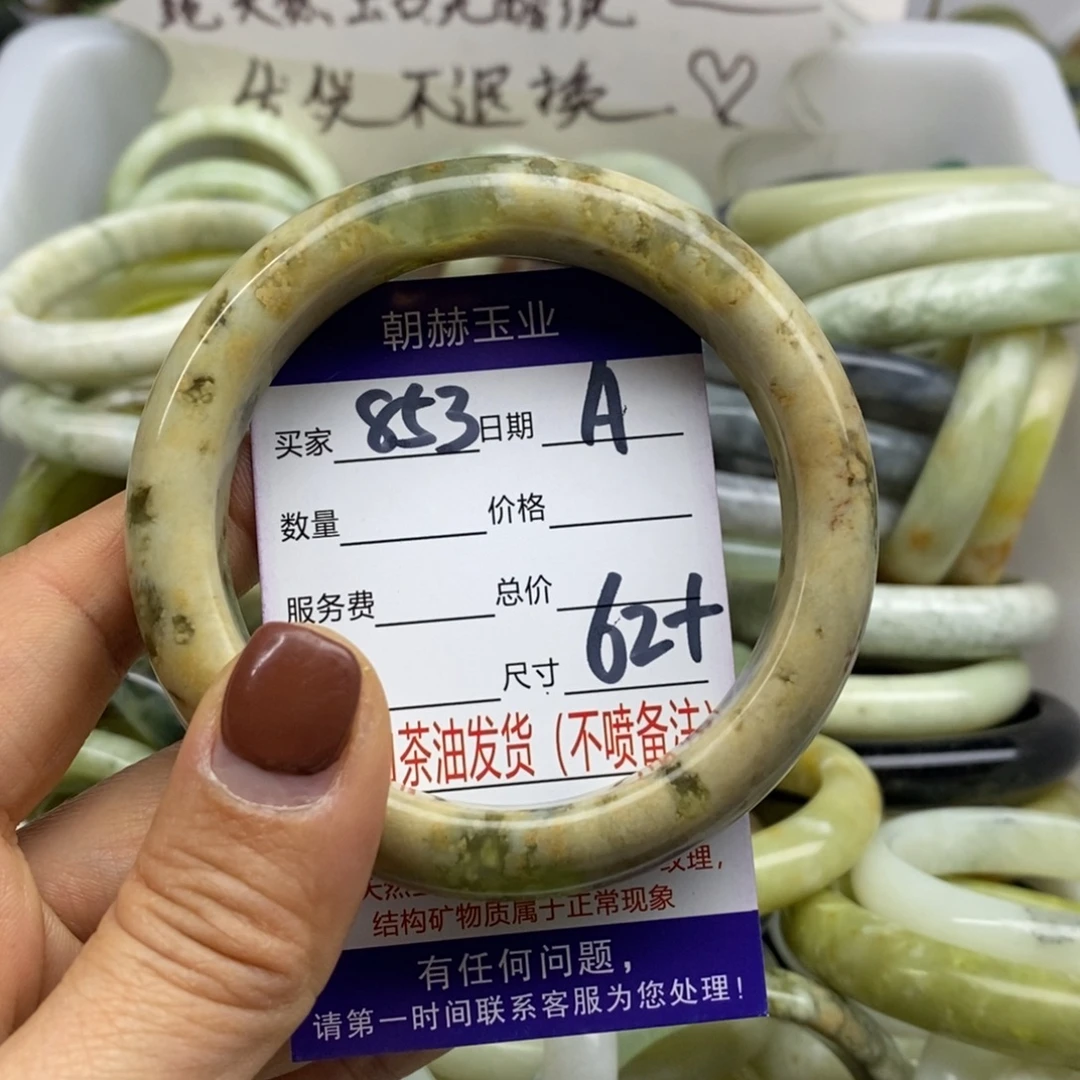 售出不退换
朝赫玉业
买家 853 日期 A
数量 价格
服务费 总价
尺寸 62+
茶油发货（不喷备注）
纹理，
结构矿物质属于正常现象
有任何问题，
请第一时间联系客服为您处理！